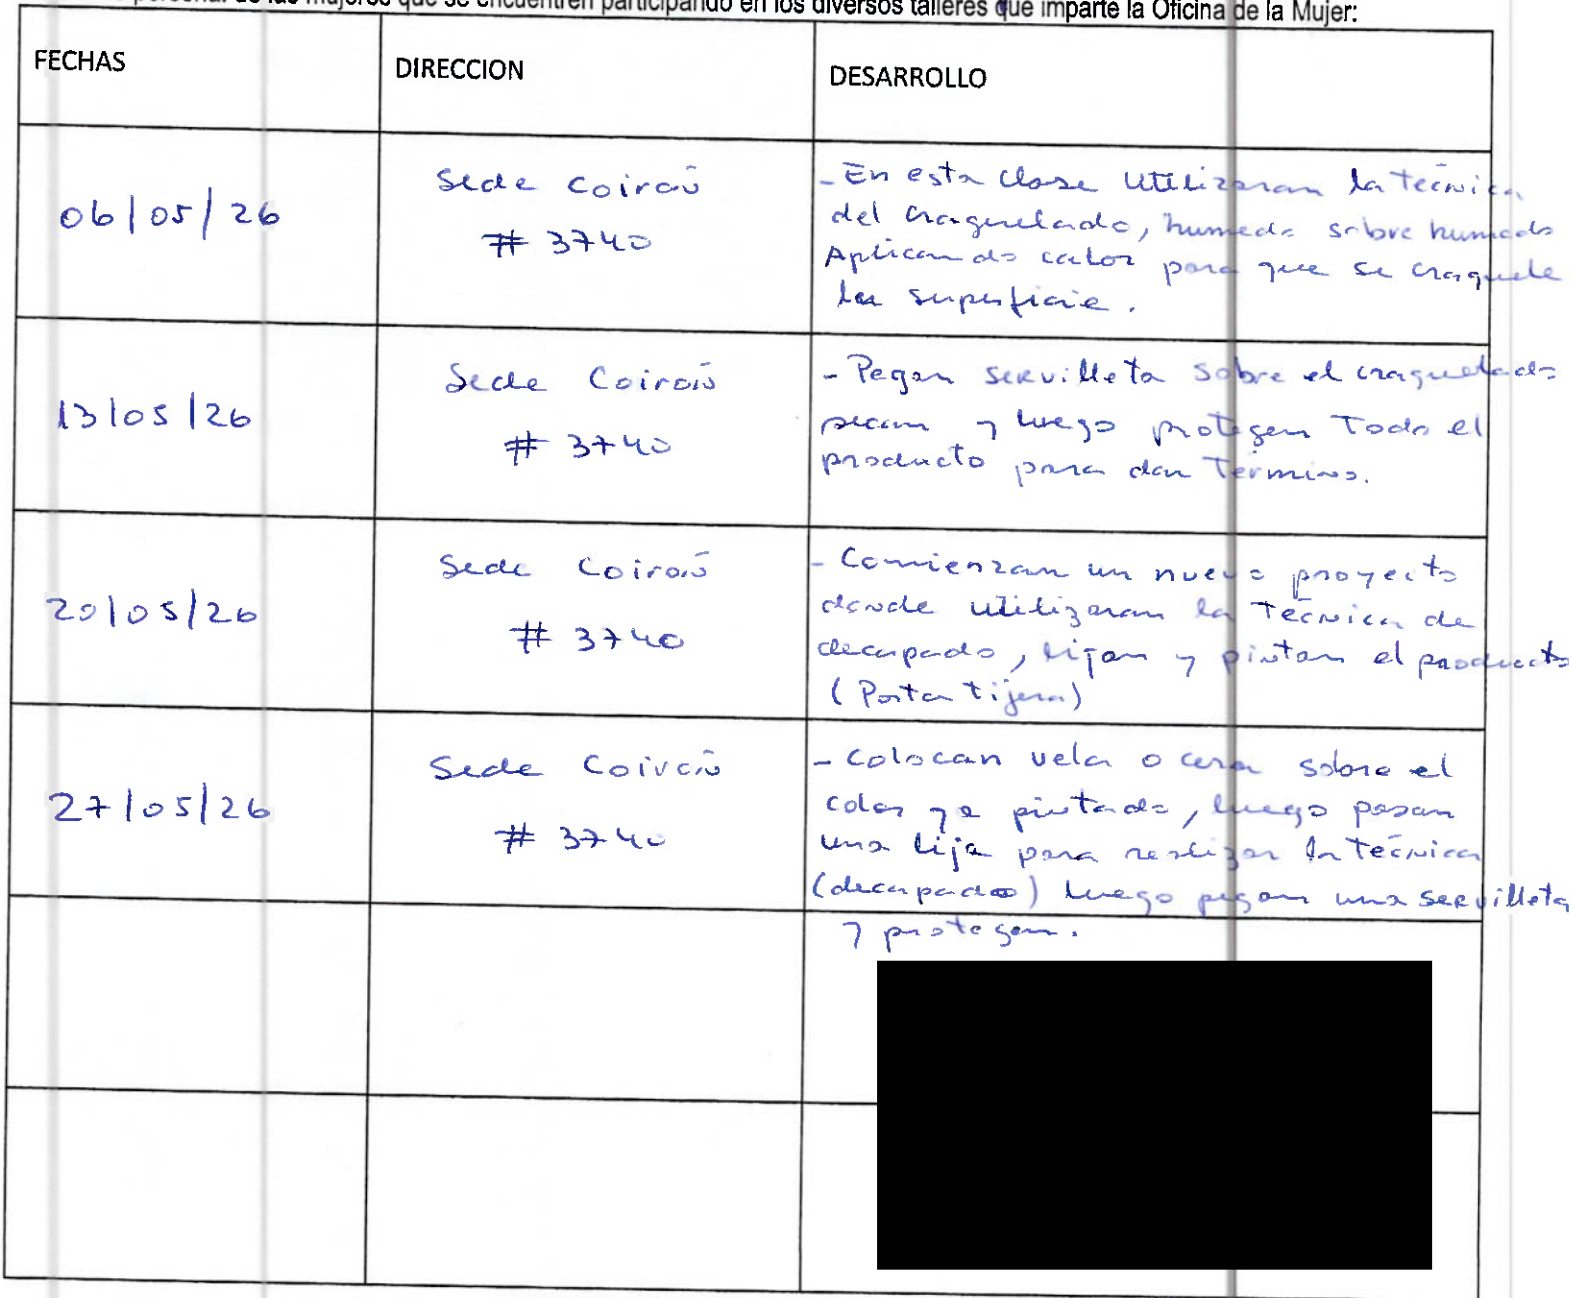 personal de las mujeres que se encuentren participando en los diversos talleres que imparte la Oficina de la Mujer:
FECHAS DIRECCION DESARROLLO
06/05/26
Sede Coirón
# 3740
- En esta clase utilizaran la tecnica
del craquelado, humedo sobre humedo
Aplicando calor para que se craquele
la superficie.
13/05/26
Sede Coirón
# 3740
- Pegan servilleta sobre el craquelado
secan y luego protegen Todo el
producto para dar Termino.
20/05/26
Sede Coirón
# 3740
- Comienzan un nuevo proyecto
donde utilizaran la Técnica de
decapado, lijan y pintan el producto
(Porta tijera)
27/05/26
Sede Coirón
# 3740
- Colocan vela o cera sobre el
color ya pintado, luego pasan
una lija para realizar la Técnica
(decapado) luego pegan una servilleta
y protegen.